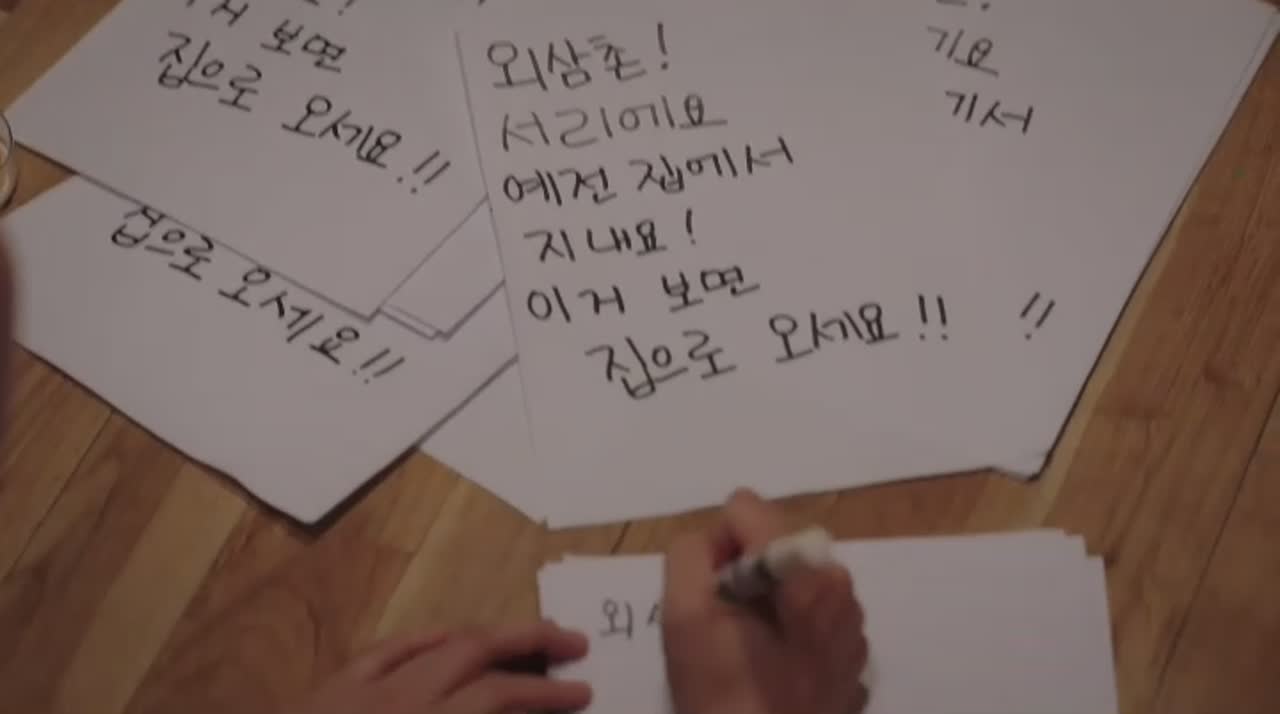 거 보면
집으로 오세요!!
집으로 오세요!!
외삼촌!
서리에요
예전 집에서
지내요!
이거 보면
집으로 오세요!!
기요
기서
!!
외